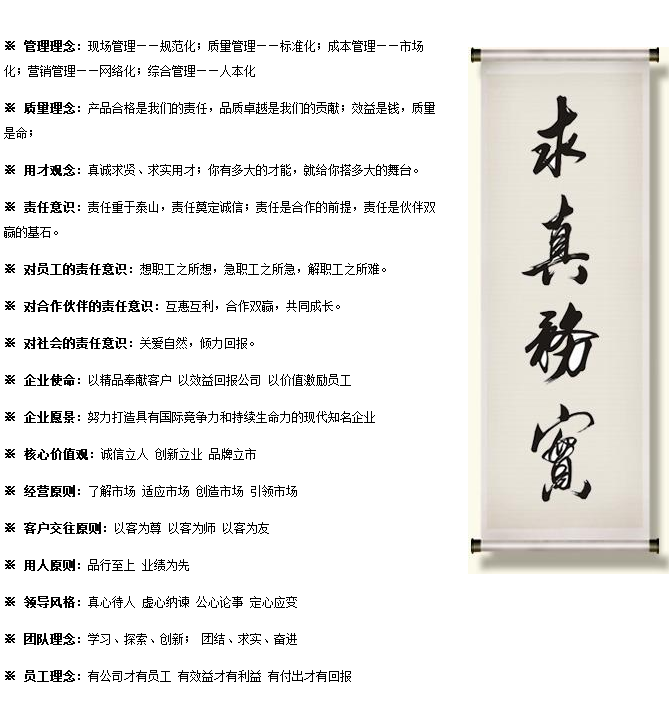 ※ 管理理念：现场管理——规范化；质量管理——标准化；成本管理——市场
化；营销管理——网络化；综合管理——人本化
※ 质量理念：产品合格是我们的责任，品质卓越是我们的贡献；效益是钱，质量
是命；
※ 用才观念：真诚求贤、求实用才；你有多大的才能，就给你搭多大的舞台。
※ 责任意识：责任重于泰山，责任奠定诚信；责任是合作的前提，责任是伙伴双
赢的基石。
※ 对员工的责任意识：想职工之所想，急职工之所急，解职工之所难。
※ 对合作伙伴的责任意识：互惠互利，合作双赢，共同成长。
※ 对社会的责任意识：关爱自然，倾力回报。
※ 企业使命：以精品奉献客户 以效益回报公司 以价值激励员工
※ 企业愿景：努力打造具有国际竞争力和持续生命力的现代知名企业
※ 核心价值观：诚信立人 创新立业 品牌立市
※ 经营原则：了解市场 适应市场 创造市场 引领市场
※ 客户交往原则：以客为尊 以客为师 以客为友
※ 用人原则：品行至上 业绩为先
※ 领导风格：真心待人 虚心纳谏 公心论事 定心应变
※ 团队理念：学习、探索、创新； 团结、求实、奋进
※ 员工理念：有公司才有员工 有效益才有利益 有付出才有回报
求真務實